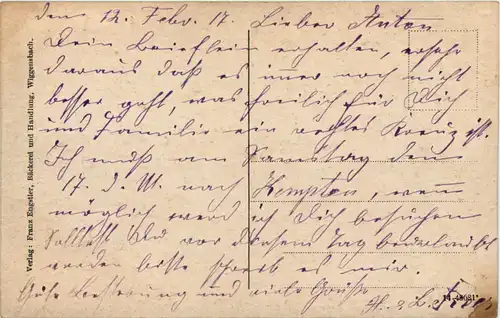 den 12. Febr. 17. Lieber Anton
Dein Brieflein erhalten, ersehe
daraus daß es imer noch nicht
besser geht, was freilich für Dich
und Familie ein rechtes Kreuz ist.
Ich muß am Samstag den
17. d. M. nach Kempten, wenn
möglich werd ich Dich besuchen
Solltest Du vor diesem Tag beurlaubt
werden bitte schreib es mir.
Gute Besserung und viele Grüße
Verlag: Franz Engstler, Bäckerei und Handlung, Wiggensbach.